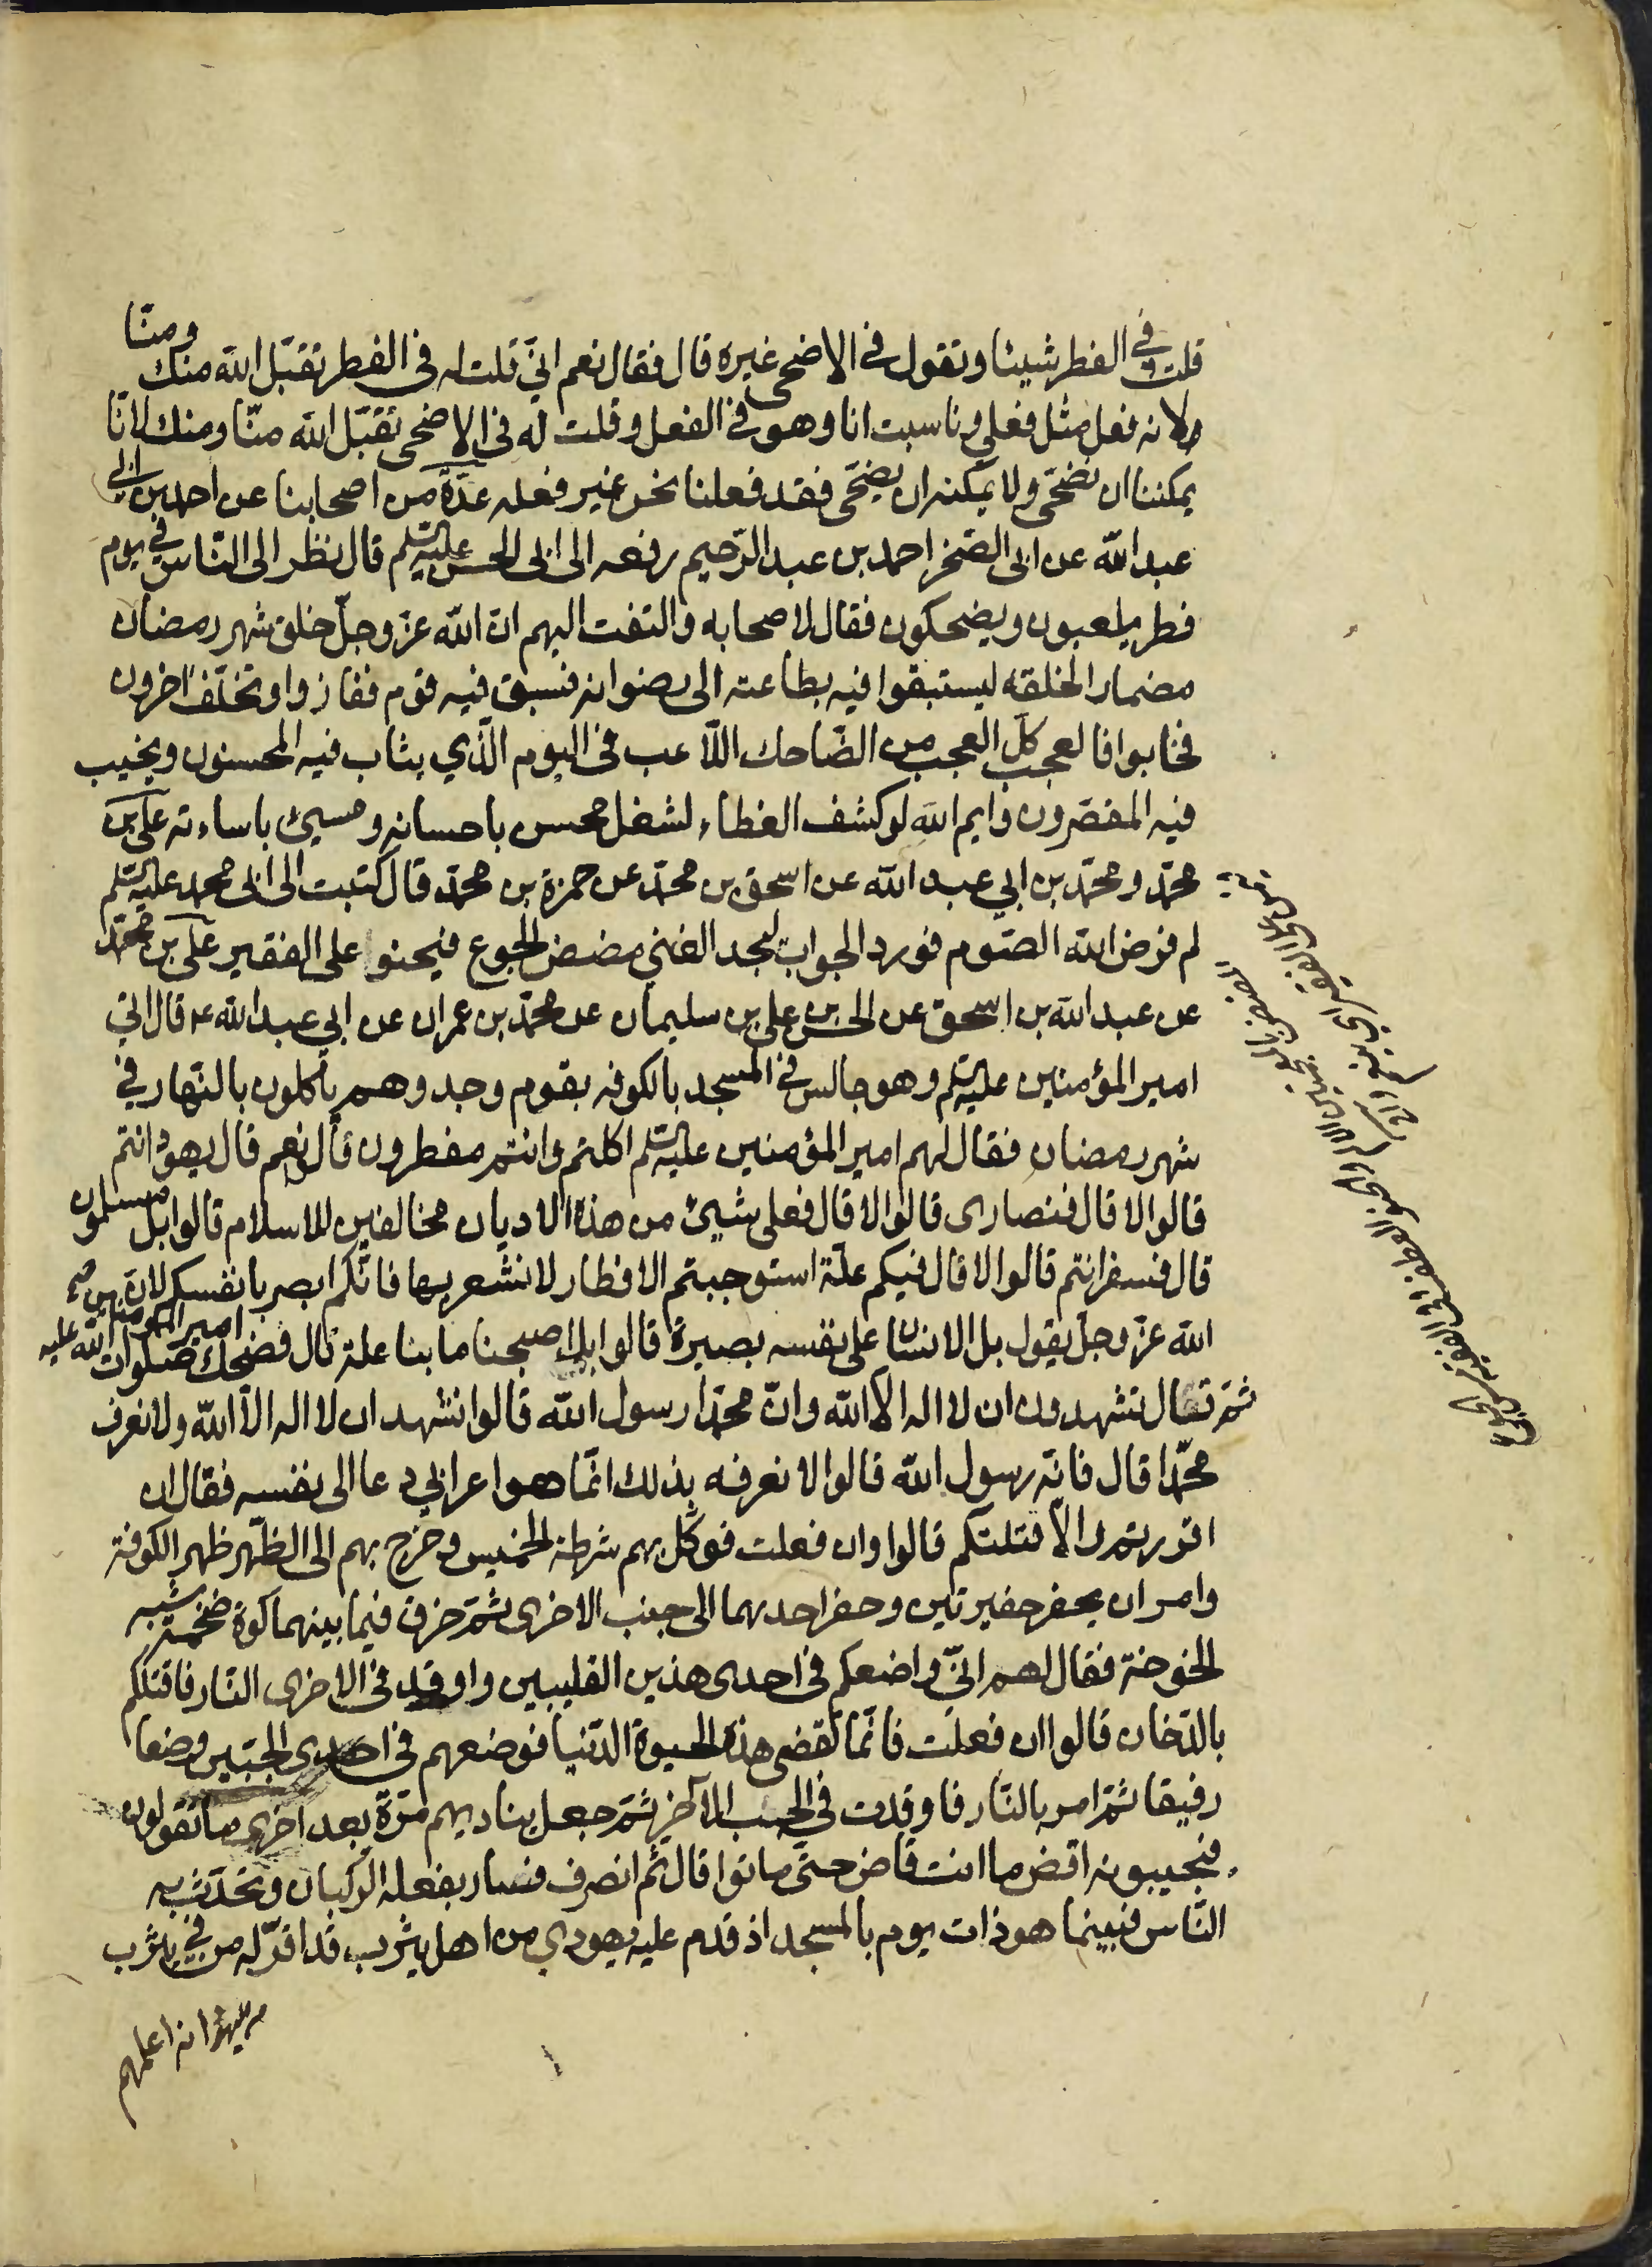 قلت في الفطر شيئا وتقول في الاضحى غيره قال فقال نعم اني قلت له في الفطر تقبل الله منك ومنا
لانه فعل مثل فعلي وناسبت انا وهو في الفعل وقلت له في الاضحى تقبل الله منا ومنك لانا
يمكننا ان نضحى ولا يمكنه ان يضحى فقد فعلنا نحن غير فعله عدة من اصحابنا عن احمد بن ابي
عبد الله عن ابي الصخر احمد بن عبد الرحيم رفعه الى ابي الحسن عليه السلم قال نظر الى الناس في يوم
فطر يلعبون ويضحكون فقال لاصحابه والتفت اليهم ان الله عز وجل خلق شهر رمضان
مضمار الخلقه ليستبقوا فيه بطاعته الى رضوانه فسبق فيه قوم ففازوا وتخلف اخرون
فخابوا فالعجب كل العجب من الضاحك اللاعب في اليوم الذي يثاب فيه المحسنون ويخيب
فيه المقصرون وايم الله لو كشف الغطاء لشغل محسن باحسانه ومسيئ باساءته علي بن
محمد ومحمد بن ابي عبد الله عن اسحق بن محمد عن حمزة بن محمد قال كتبت الى ابي محمد عليه السلم
لم فرض الله الصوم فورد الجواب ليجد الغني مضض الجوع فيحنوا على الفقير علي بن محمد
عن عبد الله بن اسحق عن الحسن بن علي بن سليمان عن محمد بن عمران عن ابي عبد الله ع قال اتي
امير المؤمنين عليه السلم وهو جالس في المسجد بالكوفه بقوم وجد وهم ياكلون بالنهار في
شهر رمضان فقال لهم امير المؤمنين عليه السلم اكلتم وانتم مفطرون قالوا نعم قال يهود انتم
قالوا لا قال فنصارى قالوا لا قال فعلى شيئ من هذه الاديان مخالفين للاسلام قالوا بل مسلمون
قال فسفر انتم قالوا لا قال فيكم علة استوجبتم الافطار لا نشعر بها فانكم ابصر بانفسكم لان
الله عز وجل يقول بل الانسان على نفسه بصيرة قالوا بل اصبحنا ما بنا علة قال فضحك امير المؤمنين صلوات الله عليه
ثم قال تشهدون ان لا اله الا الله وان محمدا رسول الله قالوا نشهد ان لا اله الا الله ولا نعرف
محمدا قال فانه رسول الله قالوا لا نعرفه بذلك انما هو اعرابي دعا الى نفسه فقال ان
اقررتم والا قتلتكم قالوا وان فعلت فوكل بهم شرطة الخميس وخرج بهم الى الظهر ظهر الكوفة
وامر ان يحفر حفيرتين وحفر احديهما الى جنب الاخرى ثم خرق فيما بينهما كوة ضخمة شبه
الخوخة فقال لهم اني واضعكم في احدى هذين القليبين واوقد في الاخرى النار فاقتلكم
بالدخان قالوا ان فعلت فانما تقضى هذه الحيوة الدنيا فوضعهم في احدى الجبين وضعا
رفيقا ثم امر بالنار فاوقدت في الجب الآخر ثم جعل يناديهم مرة بعد اخرى ما تقولون
فيجيبونه اقض ما انت قاض حتى ماتوا قال ثم انصرف فسار بفعله الركبان وتحدث به
الناس فبينما هو ذات يوم بالمسجد اذ قدم عليه يهودي من اهل يثرب قد اقر له من في يثرب
من اليهود انه اعلمهم